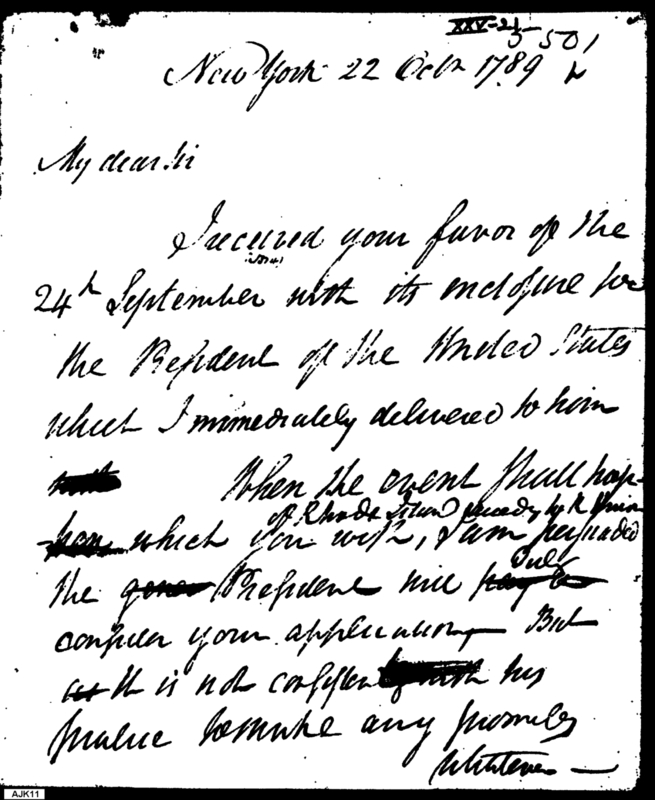 XXV-21
5501
New York 22 Octr 1789
My dear Sir
I received your favor of the
24th September with its enclosure for
the President of the United States
which I immediately delivered to him
When the event shall hap-
of Rhode Island acceding to the Union
which you wish, I am persuaded
duly
the President will
consider your application But
as it is not consistent his
practice to make any promises
whatever —
AJK11